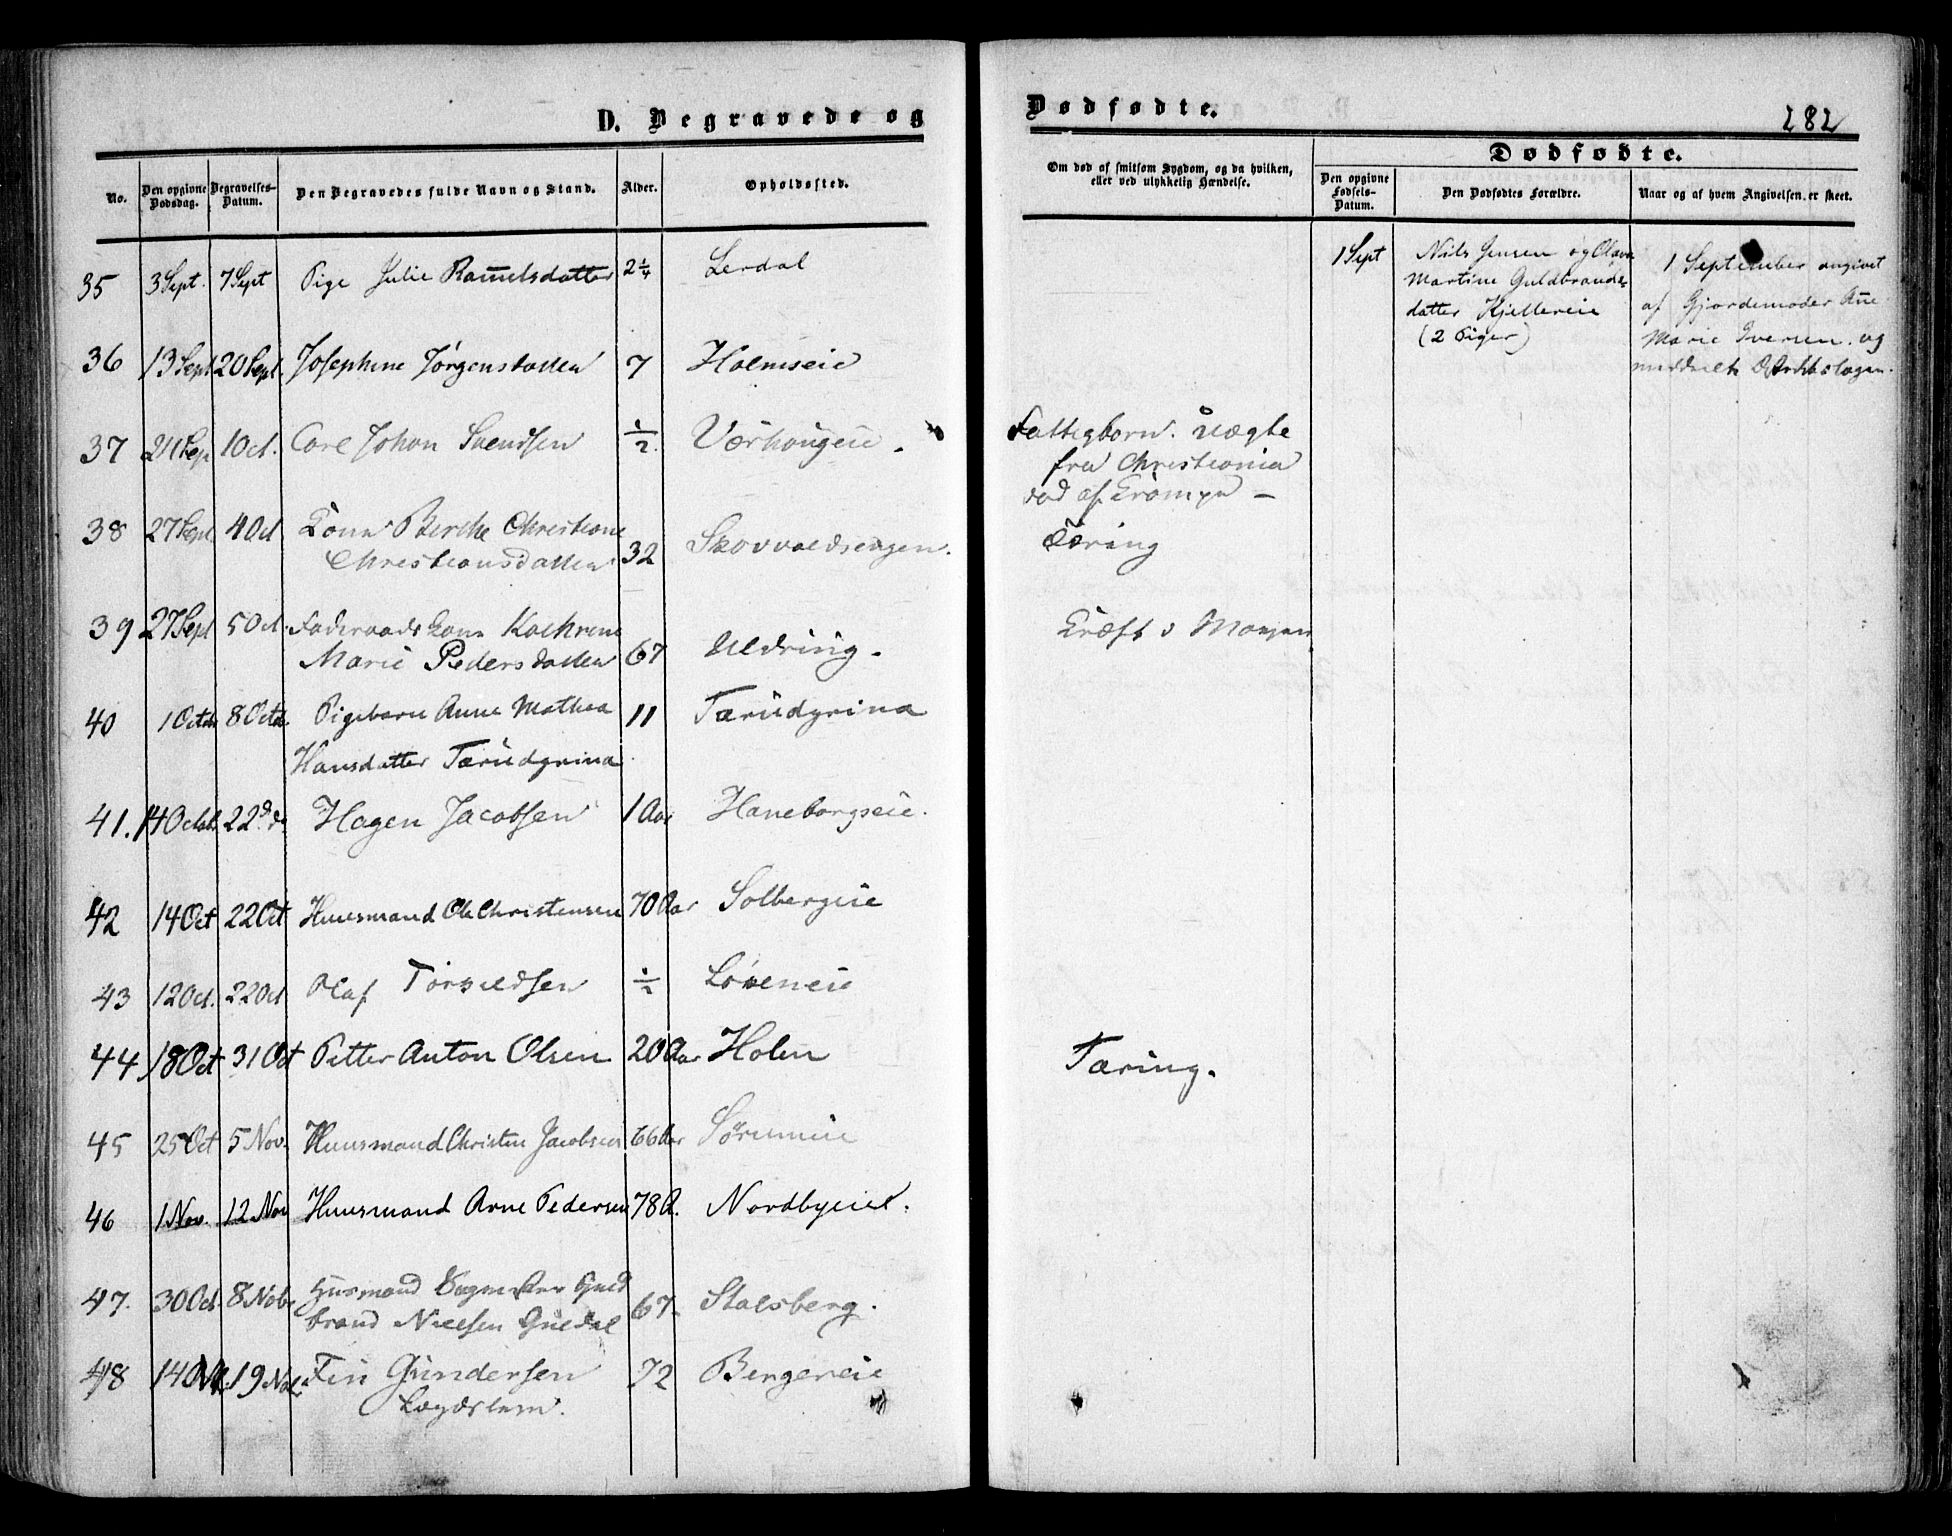 D. Begravede og
Dødfødte.
282
No.
Den opgivne Dødsdag.
Begravelses-Datum.
Den Begravedes fulde Navn og Stand.
Alder.
Opholdssted.
Om død af smitsom Sygdom, og da hvilken,
eller ved ulykkelig Hændelse.
Dødfødte.
Den opgivne Fødsels-Datum.
Den Dødfødtes Forældre.
Naar og af hvem Angivelsen er skeet.
35 3 Sept. 7 Sept Pige Julie 2 1/4 Lerdal
1 Sept
Nils Jensen og Olava
Martine Guldbrands-
datter Kjellereie
(2 Piger)
1 September angivet
af Gjordemoder Ane
Marie Iversen og
36 13 Sept 20 Sept. Josephine Jørgensdatter 7 Holmseie
37 21 Sep 1 Oct. Carl Johan Svendsen 1/2
Fattigbarn. uægte
fra Christiania
død af Krampe –
38 27 Sept 4 Oct Kone Berthe Christiane
Christiansdatter 32 Skovvoldsengen.
Tæring
39 27 Sept 5 Oct. Føderaadskone Kathrine
Marie Pedersdatter 67 Uldring.
Kræft i Maven
40 1 Octb 8 Octb Pigebarn Anne Mathea 11 Tærudgrina
Hansdatter Tærudgrina
41. 14 Octob. 22 d. Hagen Jacobsen 1 Aar Haneborgseie.
42 14 Oct 22 Oct Huusmand Ole Christensen 70 Aar Solbergeie
43 12 Oct. 22 Oct Olaf Torvildsen 1/2 Løkeneie
44 18 Oct 31 Oct Petter Anton Olsen 20 Aar Holen
Tæring.
45 25 Oct 5 Nov. Huusmand Christen Jacobsen 66 Aar Sørumeie
46 1 Nov. 12 Nov Huusmand Arne Pedersen 78 A. Nordbyeiet.
47. 30 Oct. 8 Nobr Husmand Guld
brand Nielsen 67. Stalsberg.
48 14 19 Nob. Fin Gundersen 72 Bergereie
Lægdslem.